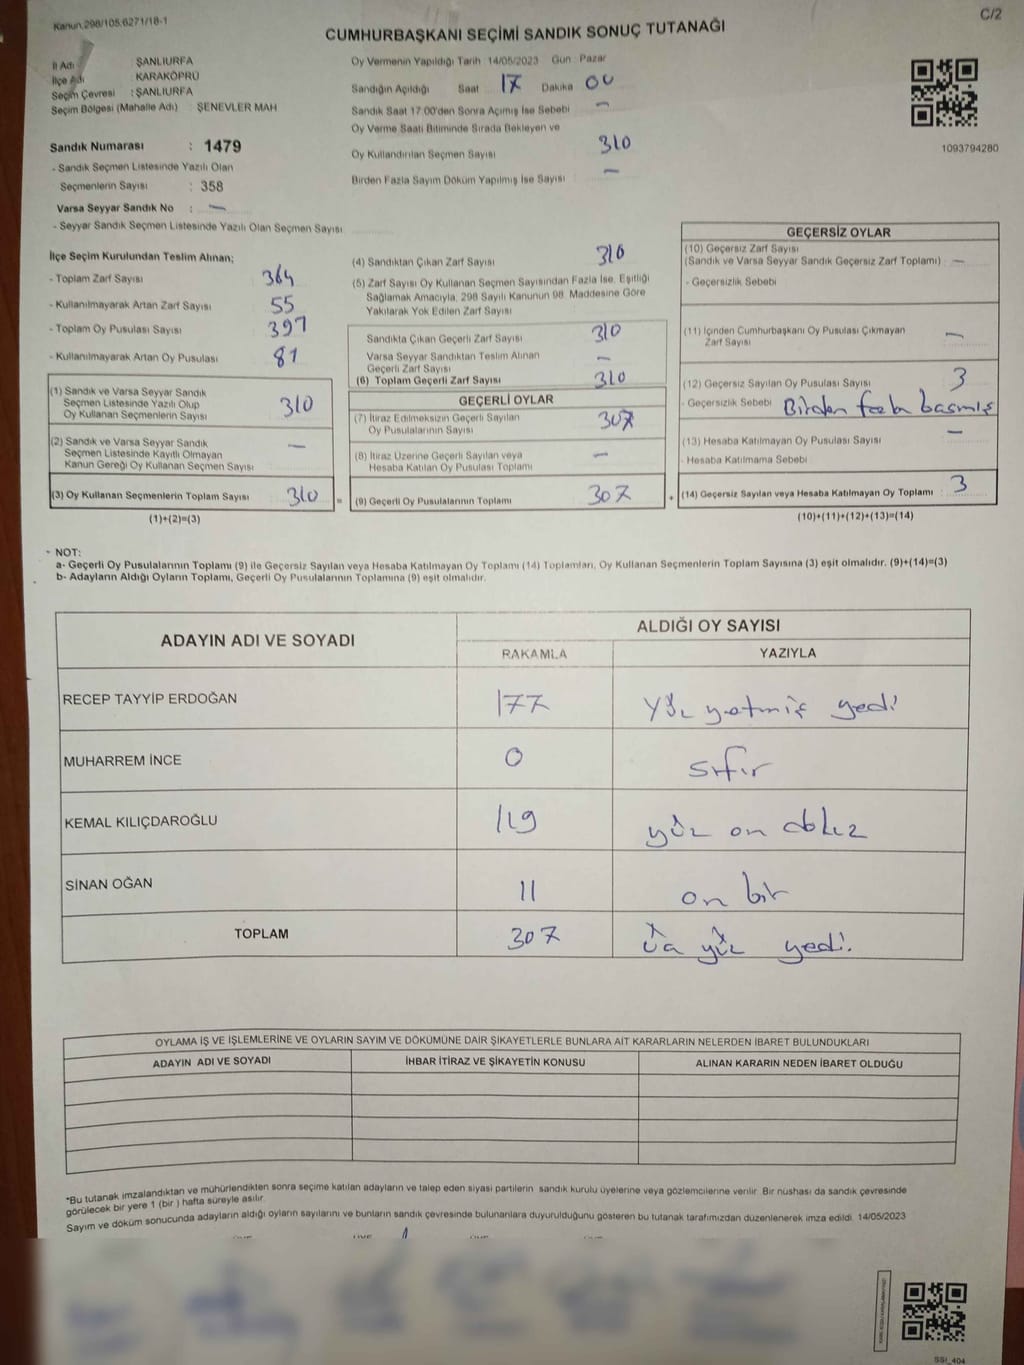 Kanun.298/105.6271/18-1
C/2
CUMHURBAŞKANI SEÇİMİ SANDIK SONUÇ TUTANAĞI
İl Adı : ŞANLIURFA
İlçe Adı : KARAKÖPRÜ
Seçim Çevresi : ŞANLIURFA
Seçim Bölgesi (Mahalle Adı) : ŞENEVLER MAH
Oy Vermenin Yapıldığı Tarih 14/05/2023 Gün Pazar
Sandığın Açıldığı Saat 17 Dakika 00
Sandık Saat 17:00'den Sonra Açımış İse Sebebi –
Oy Verme Saati Bitiminde Sırada Bekleyen ve
Oy Kullandırılan Seçmen Sayısı 310
Birden Fazla Sayım Döküm Yapılmış İse Sayısı –
1093794280
Sandık Numarası : 1479
- Sandık Seçmen Listesinde Yazılı Olan
Seçmenlerin Sayısı : 358
Varsa Seyyar Sandık No : –
- Seyyar Sandık Seçmen Listesinde Yazılı Olan Seçmen Sayısı
İlçe Seçim Kurulundan Teslim Alınan;
- Toplam Zarf Sayısı 364
- Kullanılmayarak Artan Zarf Sayısı 55
- Toplam Oy Pusulası Sayısı 397
- Kullanılmayarak Artan Oy Pusulası 81
(1) Sandık ve Varsa Seyyar Sandık
Seçmen Listesinde Yazılı Olup
Oy Kullanan Seçmenlerin Sayısı 310
(2) Sandık ve Varsa Seyyar Sandık
Seçmen Listesinde Kayıtlı Olmayan
Kanun Gereği Oy Kullanan Seçmen Sayısı –
(3) Oy Kullanan Seçmenlerin Toplam Sayısı 310 =
(1)+(2)=(3)
(4) Sandıktan Çıkan Zarf Sayısı 310
(5) Zarf Sayısı Oy Kullanan Seçmen Sayısından Fazla İse, Eşitliği
Sağlamak Amacıyla, 298 Sayılı Kanunun 98. Maddesine Göre
Yakılarak Yok Edilen Zarf Sayısı
Sandıkta Çıkan Geçerli Zarf Sayısı 310
Varsa Seyyar Sandıktan Teslim Alınan
Geçerli Zarf Sayısı –
(6) Toplam Geçerli Zarf Sayısı 310
GEÇERLİ OYLAR
(7) İtiraz Edilmeksizin Geçerli Sayılan
Oy Pusulalarının Sayısı 307
(8) İtiraz Üzerine Geçerli Sayılan veya
Hesaba Katılan Oy Pusulası Toplamı –
(9) Geçerli Oy Pusulalarının Toplamı 307 +
GEÇERSİZ OYLAR
(10) Geçersiz Zarf Sayısı
(Sandık ve Varsa Seyyar Sandık Geçersiz Zarf Toplamı) –
- Geçersizlik Sebebi
(11) İçinden Cumhurbaşkanı Oy Pusulası Çıkmayan
Zarf Sayısı –
(12) Geçersiz Sayılan Oy Pusulası Sayısı 3
- Geçersizlik Sebebi Birden fazla basmış
(13) Hesaba Katılmayan Oy Pusulası Sayısı –
- Hesaba Katılmama Sebebi
(14) Geçersiz Sayılan veya Hesaba Katılmayan Oy Toplamı 3
(10)+(11)+(12)+(13)=(14)
- NOT:
a- Geçerli Oy Pusulalarının Toplamı (9) ile Geçersiz Sayılan veya Hesaba Katılmayan Oy Toplamı (14) Toplamları, Oy Kullanan Seçmenlerin Toplam Sayısına (3) eşit olmalıdır. (9)+(14)=(3)
b- Adayların Aldığı Oyların Toplamı, Geçerli Oy Pusulalarının Toplamına (9) eşit olmalıdır.
ADAYIN ADI VE SOYADI
ALDIĞI OY SAYISI
RAKAMLA YAZIYLA
RECEP TAYYİP ERDOĞAN 177 Yüz yetmiş yedi
MUHARREM İNCE 0 sıfır
KEMAL KILIÇDAROĞLU 119 yüz on dokuz
SİNAN OĞAN 11 on bir
TOPLAM 307 üç yüz yedi.
OYLAMA İŞ VE İŞLEMLERİNE VE OYLARIN SAYIM VE DÖKÜMÜNE DAİR ŞİKAYETLERLE BUNLARA AİT KARARLARIN NELERDEN İBARET BULUNDUKLARI
ADAYIN ADI VE SOYADI İHBAR İTİRAZ VE ŞİKAYETİN KONUSU ALINAN KARARIN NEDEN İBARET OLDUĞU
*Bu tutanak imzalandıktan ve mühürlendikten sonra seçime katılan adayların ve talep eden siyasi partilerin sandık kurulu üyelerine veya gözlemcilerine verilir. Bir nüshası da sandık çevresinde
görülecek bir yere 1 (bir) hafta süreyle asılır.
Sayım ve döküm sonucunda adayların aldığı oyların sayılarını ve bunların sandık çevresinde bulunanlara duyurulduğunu gösteren bu tutanak tarafımızdan düzenlenerek imza edildi. 14/05/2023
SSI_404